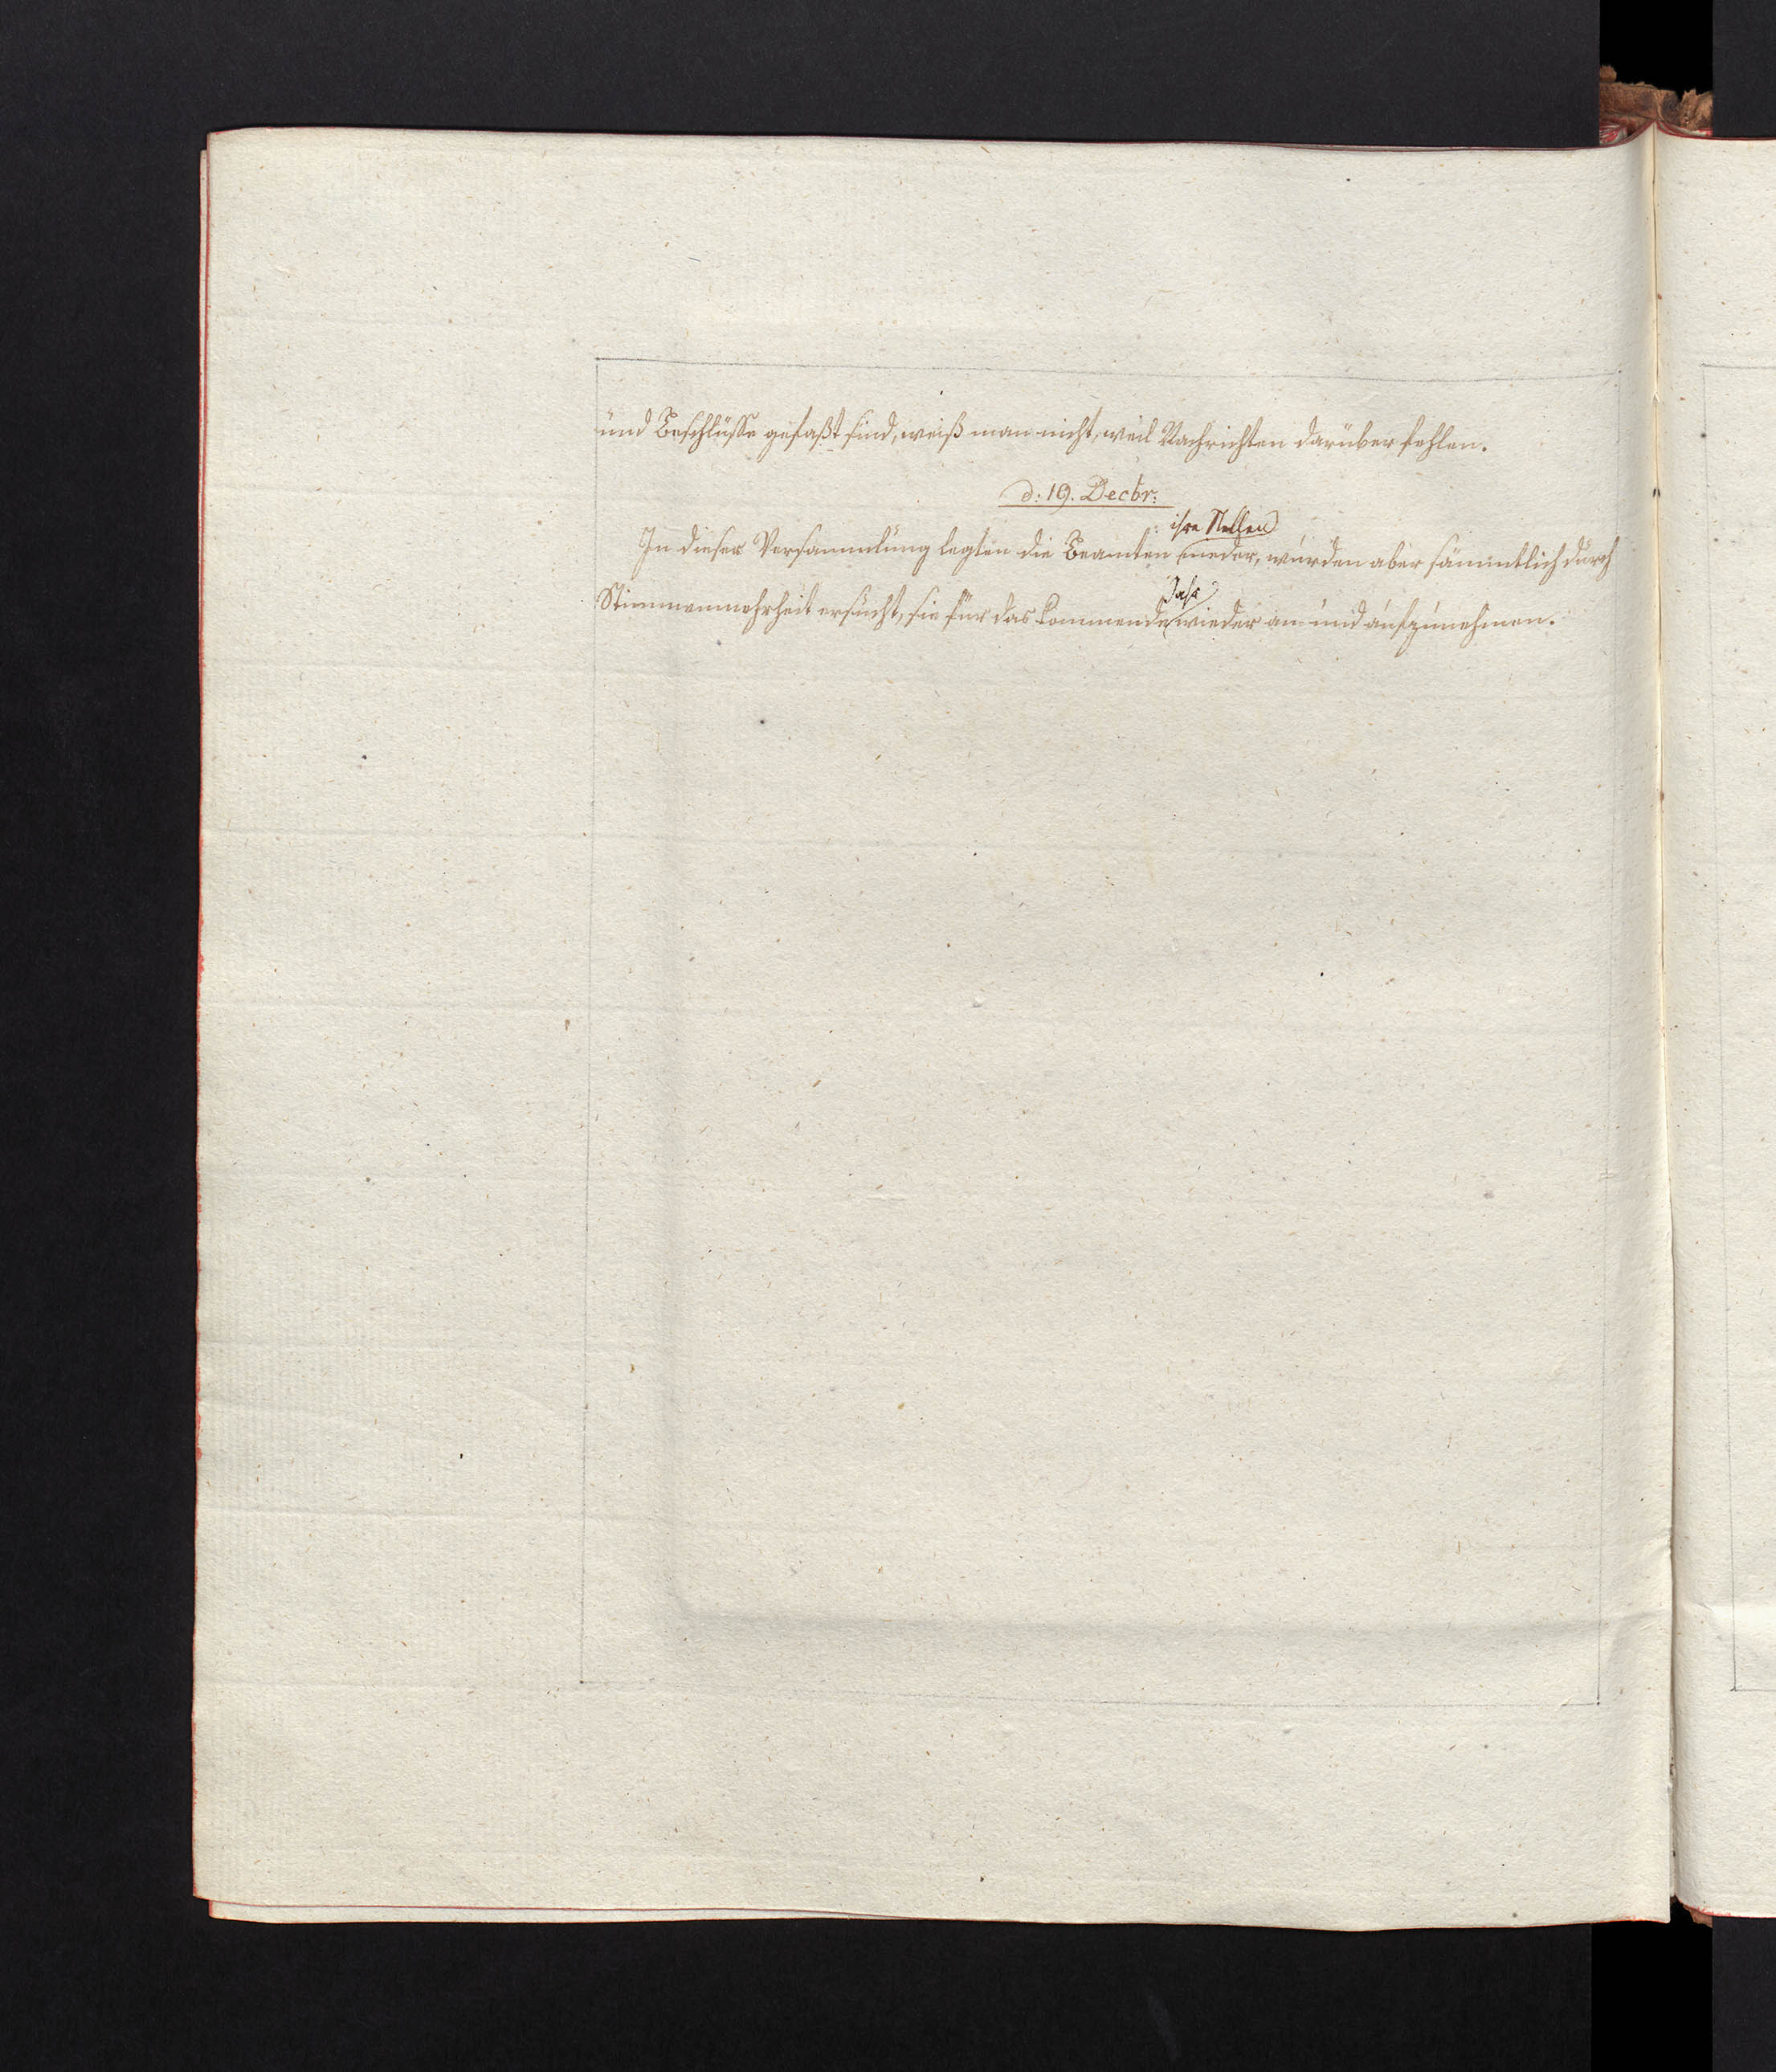 und Beschlüsse gefaßt sind, weiß man nicht, weil Nachrichten darüber fehlen.
d: 19. Decbr:
ihre Stellen
In dieser Versammlung legten die Beamten nieder, wurden aber sämmtlich durch
Jahr
Stimmenmehrheit ersucht, sie für das kommende wieder an- und aufzunehmen.